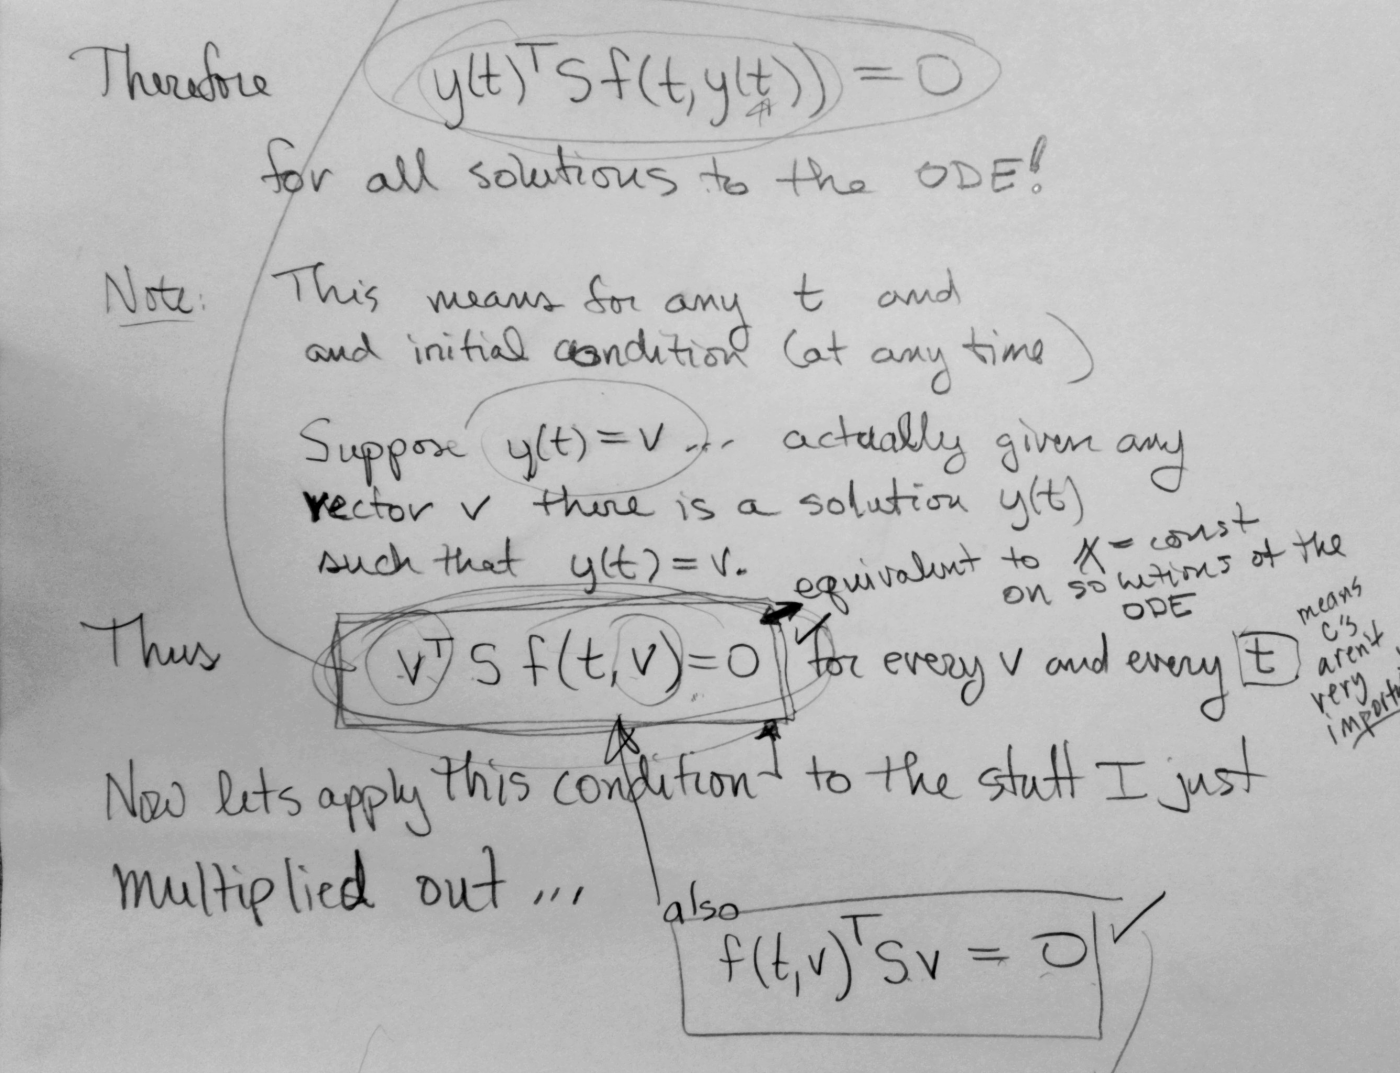 Therefore y(t)ᵀSf(t,y(t)) = 0
for all solutions to the ODE!
Note: This means for any t and
and initial condition (at any time)
Suppose y(t) = v ... actually given any
vector v there is a solution y(t)
such that y(t) = v.
equivalent to X = const
on solutions of the
ODE
Thus vᵀ S f(t,v) = 0 for every v and every t
means
c's
aren't
very
important
Now lets apply this condition to the stuff I just
multiplied out ...
also
f(t,v)ᵀSv = 0